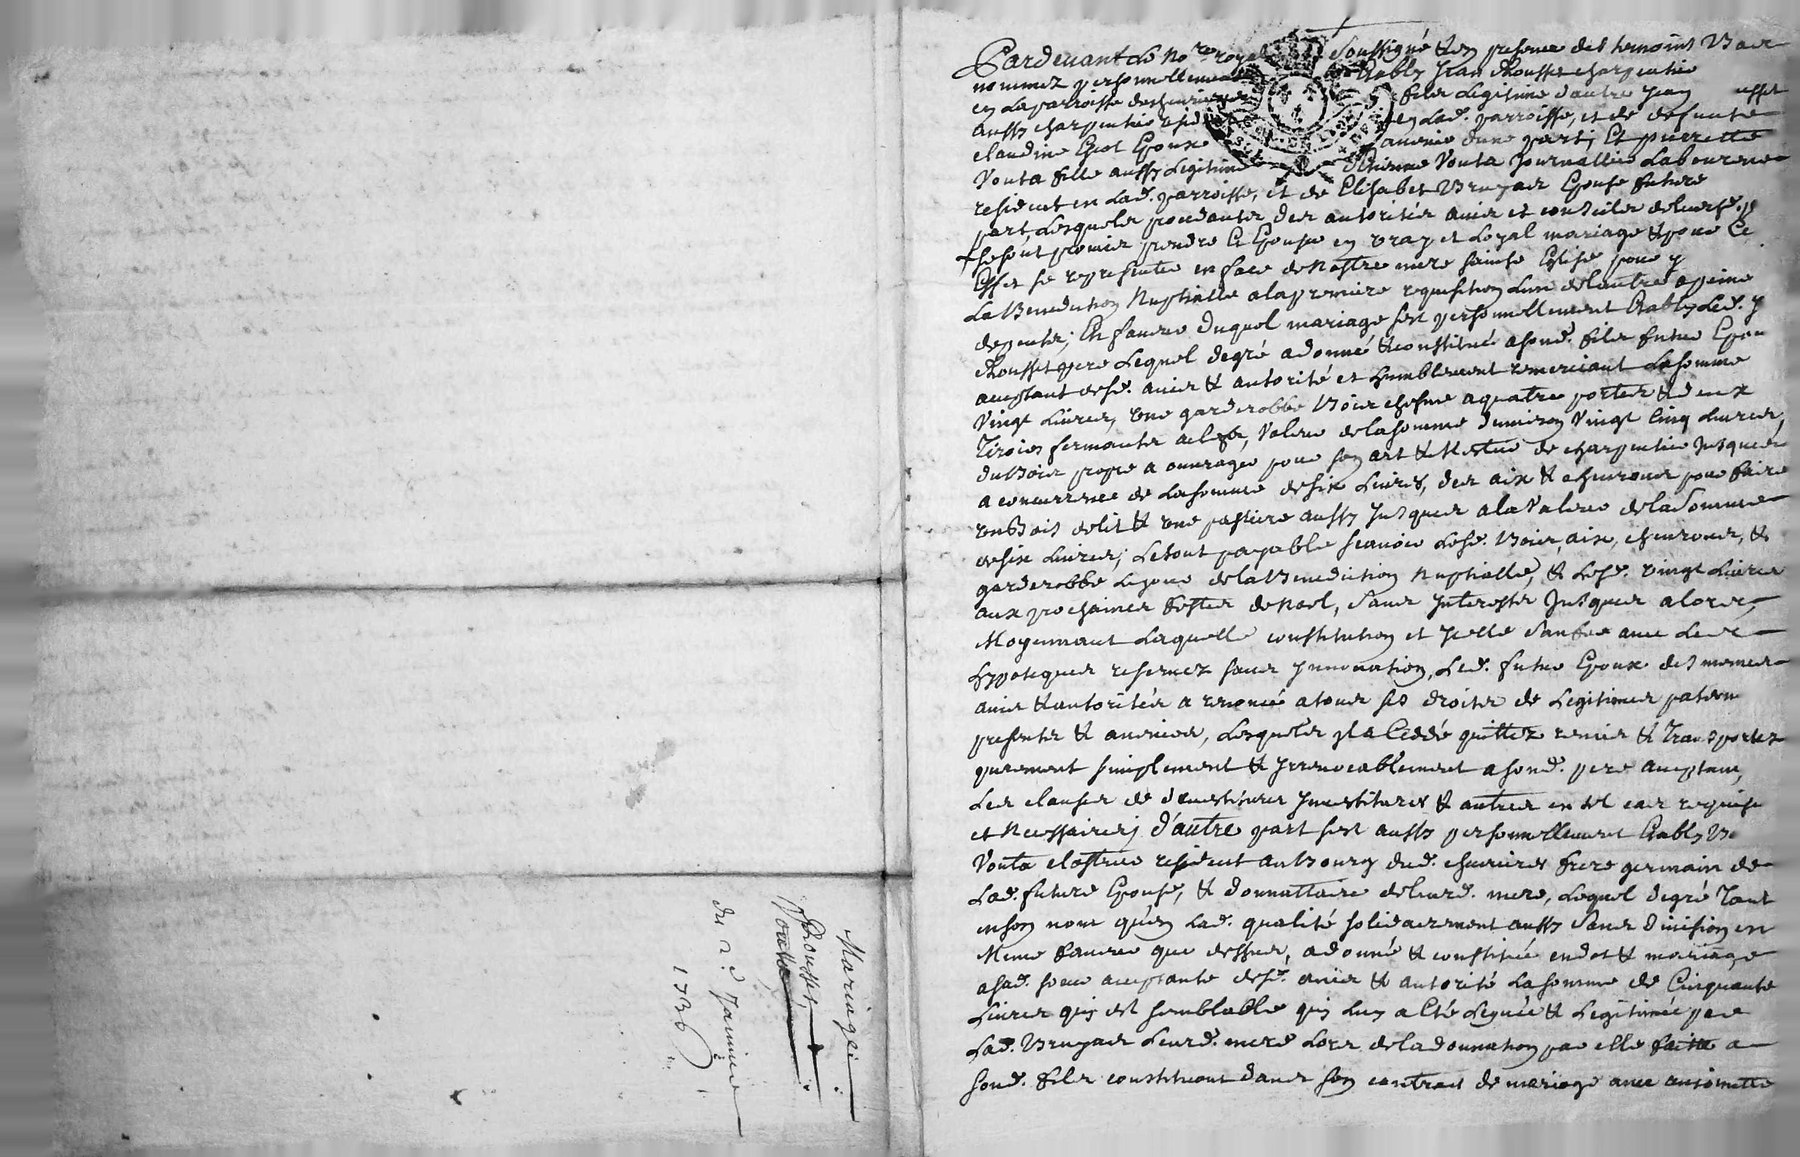 Mariage
Rousset,
Voutta
du 2.e Janvier
1736
Pardevant Le No.re royal soussigné & en presence des temoins Bas
nommez personnellement Establys Jean Rousset charpentier
en La parroisse de fils Legitime d'autre Jean
aussy charpentier resident en Lad. parroisse, et de deffunte
claudine Epoux d'une part; Et pierrette
Vouta fille aussy Legitime Vouta Journallier Laboureur
resident en Lad. parroisse, et de Elisabet Bruyas Epouse future
part, Lesquels procedants des autorités avis et conseils de leurs
se sont promis prendre Et Epouser en vray et Loyal mariage & pour Ce
Effet se representer en face de Nostre mere sainte Eglise pour y
La Benediction Nuptialle a la premiere requisition L'un de L'autre a peine
depents; En faveur duquel mariage s'est personnellement Estably Led.
Rousset pere Lequel de gré a donné & constitué a sond. fils futur Epoux
acceptant desd. avis & autorité et humblement remerciant La somme
Vingt Livres, une garderobbe Bois chesne a quatre portes & deux
Tiroirs fermante a clef, valeur de la somme d'environ Vingt Cinq Livres,
du Bois propre a ouvrager pour son art & Mestier de charpentier Jusques
a concurrence de La somme de six Livres, des aix & chevrons pour faire
un Bois de lit & une pastiere aussy Jusques a la valeur de la Somme
de six Livres; Le tout payable scavoir Lesd. Bois, aix, chevrons, &
garderobbe Le jour de la Benediction Nuptialle, & Lesd. vingt Livres
aux prochaines festes de Noel, sans Interests Jusques alors,
Moyennant Laquelle constitution et Icelle sauve avec Les
hypoteques reservez sans Innovation, Led. futur Epoux des memes
avis & autorités a renoncé a tous ses droits de Legitimes patern
presents & avenir, Lesquels Il a Cedé quittez remis & Transportez
purement simplement & Irrevocablement a sond. pere acceptant,
Les clauses de devestitures Investitures & autres en tel cas requises
et Necessaires; d'autre part s'est aussy personnellement Estably
Vouta resident au Bourg dud. chevrieres frere germain de
Lad. future Epouse, & donnattaire de leurd. mere, Lequel de gré Tant
en son nom qu'en Lad. qualité solidairement aussy Sans division en
Meme faveur que dessus, a donné & constitué en dot & mariage
a sad. soeur acceptante desd. avis & autorité La somme de Cinquante
Livres qui est semblable qui Luy a Eté Leguée & Legitimée par
Lad. Bruyas Leurd. mere Lors de la donnation par elle faitte a
sond. fils constituant dans son contract de mariage avec antoinette